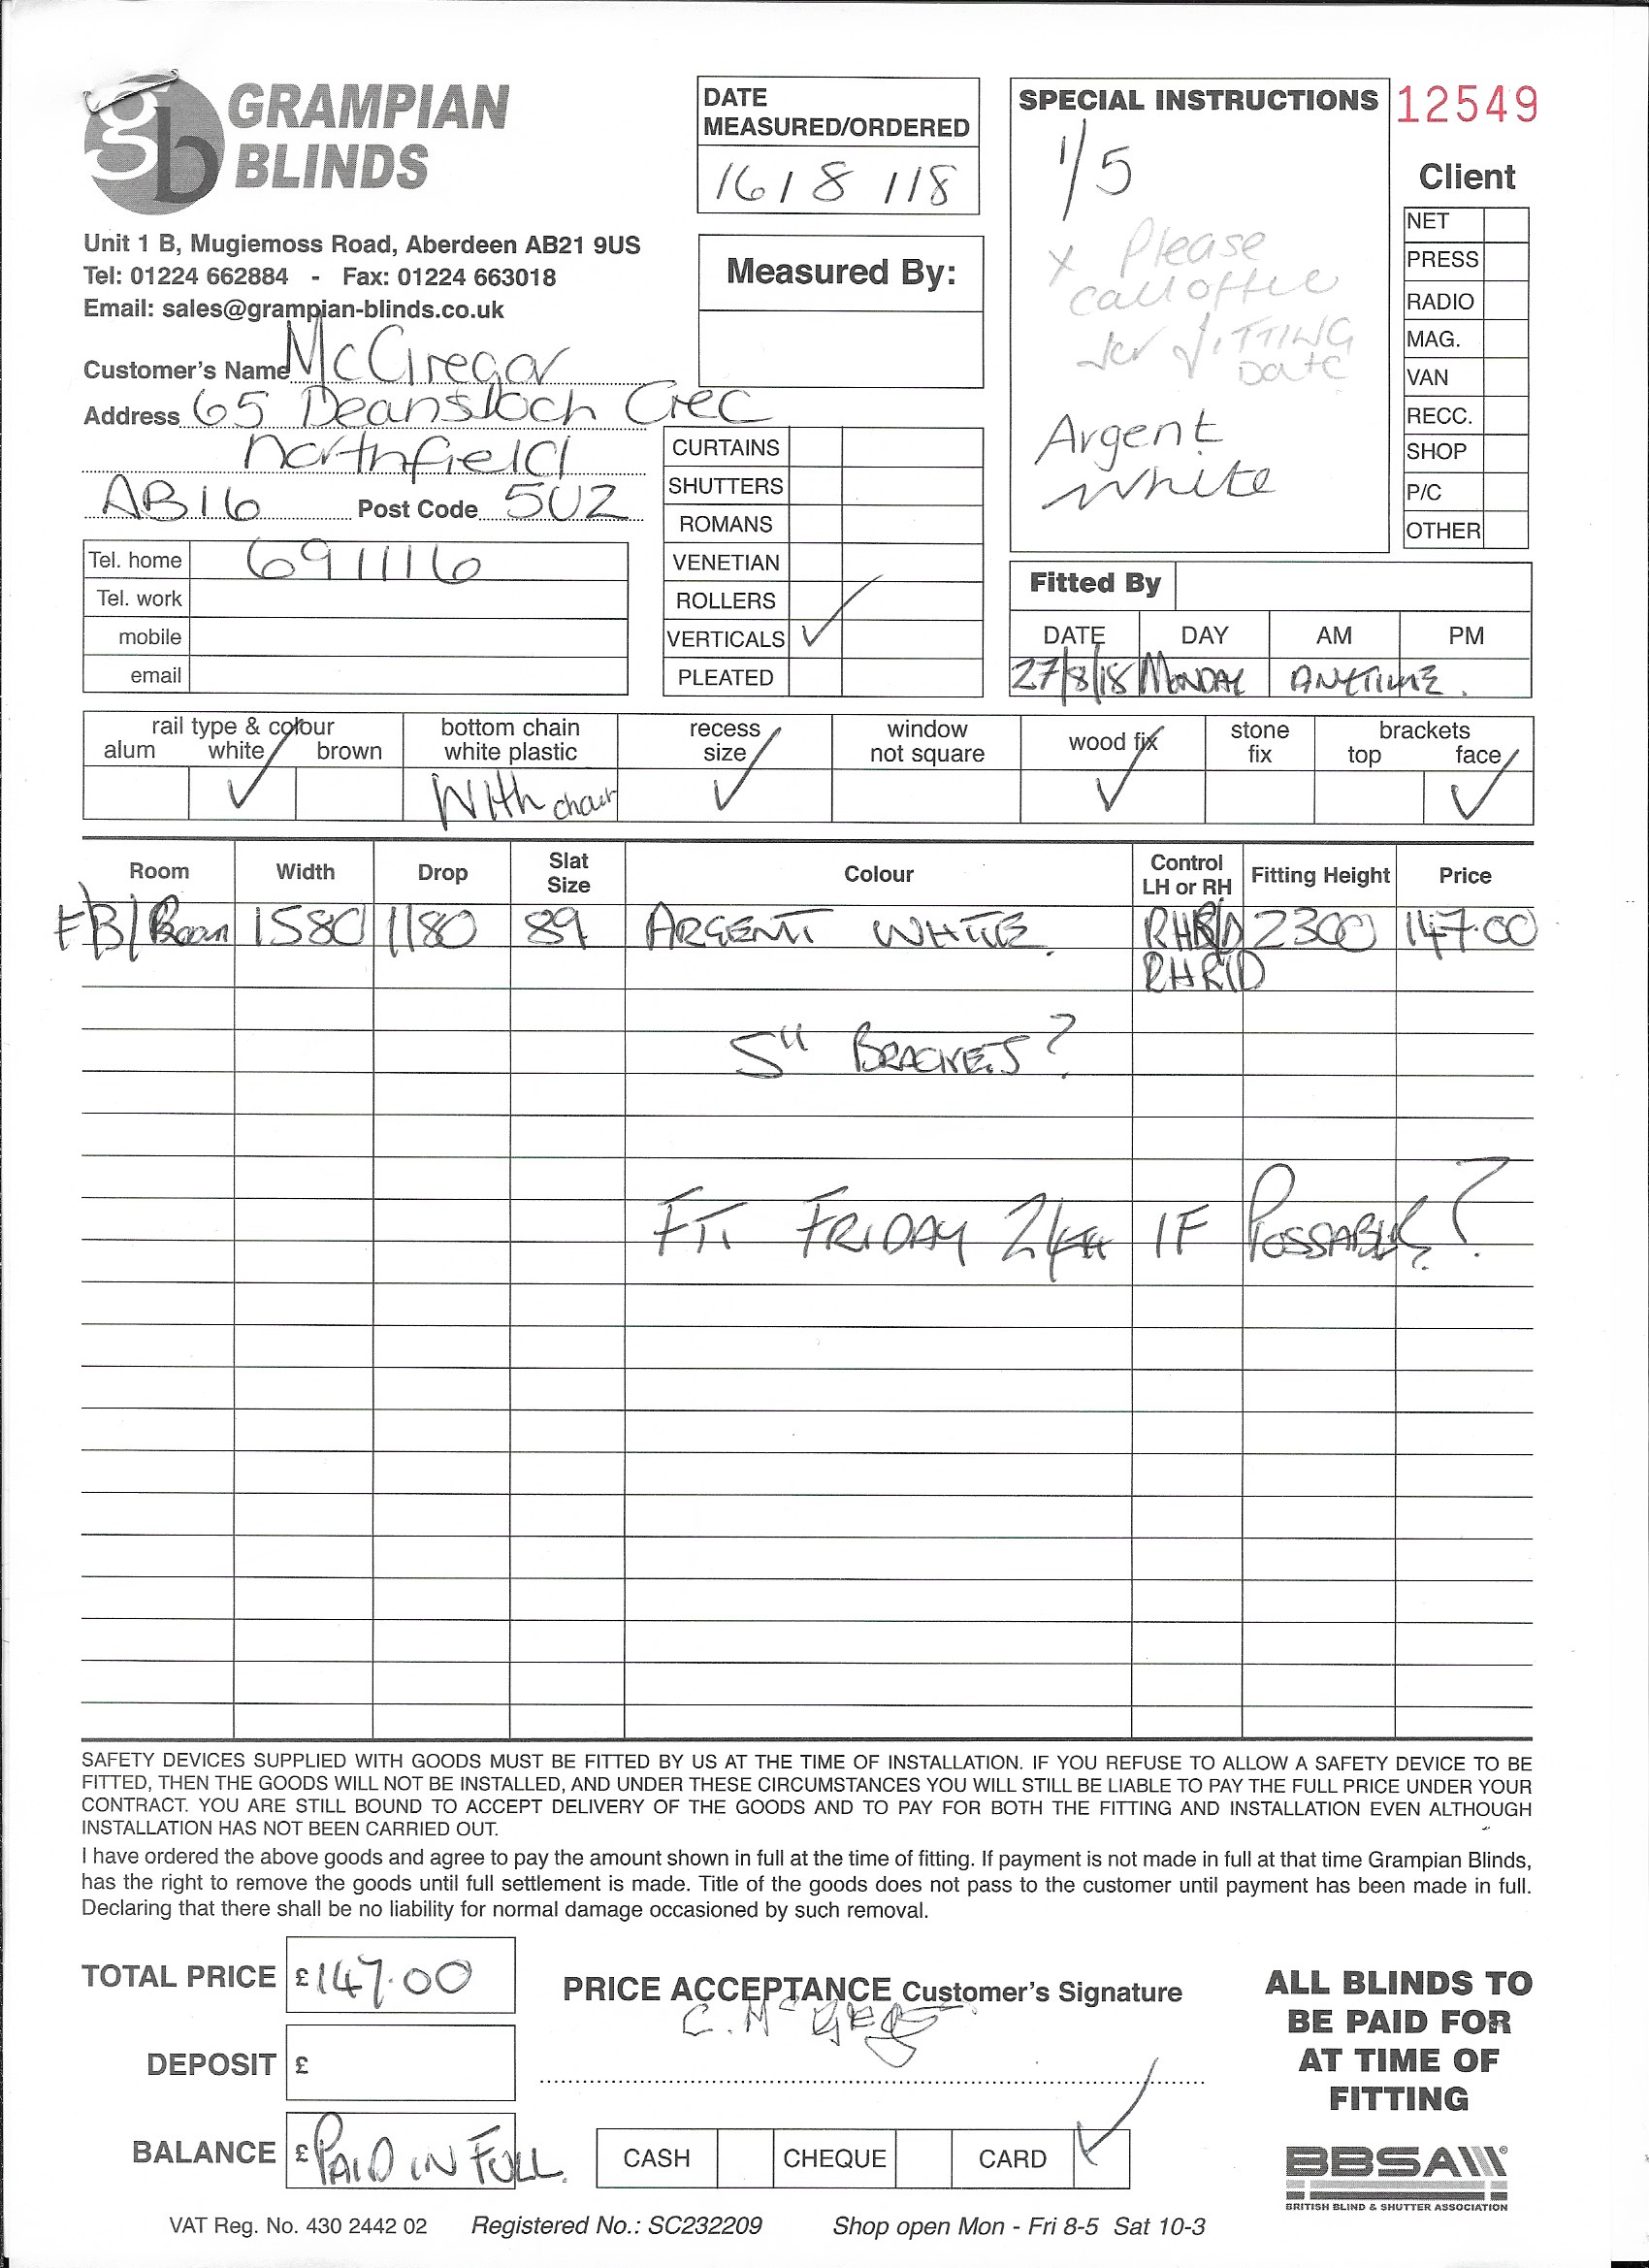 GRAMPIAN
BLINDS
Unit 1 B, Mugiemoss Road, Aberdeen AB21 9US
Tel: 01224 662884 - Fax: 01224 663018
Email: sales@grampian-blinds.co.uk
Customer's Name McGregor
Address 65 Deansloch Crec
Northfield
AB16 Post Code 5UZ
Tel. home 691116
Tel. work
mobile
email
DATE
MEASURED/ORDERED
16/8/18
Measured By:
CURTAINS
SHUTTERS
ROMANS
VENETIAN
ROLLERS
VERTICALS ✓
PLEATED
SPECIAL INSTRUCTIONS
1/5
x Please
call office
for fITTING
Date
Argent
White
12549
Client
NET
PRESS
RADIO
MAG.
VAN
RECC.
SHOP
P/C
OTHER
Fitted By
DATE DAY AM PM
27/8/18 MONDAY ANYTIME.
rail type & colour bottom chain recess window wood fix stone brackets
alum white brown white plastic size not square fix top face
✓ With chain ✓ ✓ ✓
Room Width Drop Slat Size Colour Control LH or RH Fitting Height Price
FB/Room 1580 1180 89 ARGENT WHITE. 2300 147.00
RHRD
5" BRACKETS?
FIT FRIDAY 24th IF POSSABLE?
SAFETY DEVICES SUPPLIED WITH GOODS MUST BE FITTED BY US AT THE TIME OF INSTALLATION. IF YOU REFUSE TO ALLOW A SAFETY DEVICE TO BE
FITTED, THEN THE GOODS WILL NOT BE INSTALLED, AND UNDER THESE CIRCUMSTANCES YOU WILL STILL BE LIABLE TO PAY THE FULL PRICE UNDER YOUR
CONTRACT. YOU ARE STILL BOUND TO ACCEPT DELIVERY OF THE GOODS AND TO PAY FOR BOTH THE FITTING AND INSTALLATION EVEN ALTHOUGH
INSTALLATION HAS NOT BEEN CARRIED OUT.
I have ordered the above goods and agree to pay the amount shown in full at the time of fitting. If payment is not made in full at that time Grampian Blinds,
has the right to remove the goods until full settlement is made. Title of the goods does not pass to the customer until payment has been made in full.
Declaring that there shall be no liability for normal damage occasioned by such removal.
TOTAL PRICE £147.00
DEPOSIT £
BALANCE £ PAID IN FULL.
PRICE ACCEPTANCE Customer's Signature
CASH CHEQUE CARD ✓
ALL BLINDS TO
BE PAID FOR
AT TIME OF
FITTING
BBSA
BRITISH BLIND & SHUTTER ASSOCIATION
VAT Reg. No. 430 2442 02 Registered No.: SC232209 Shop open Mon - Fri 8-5 Sat 10-3